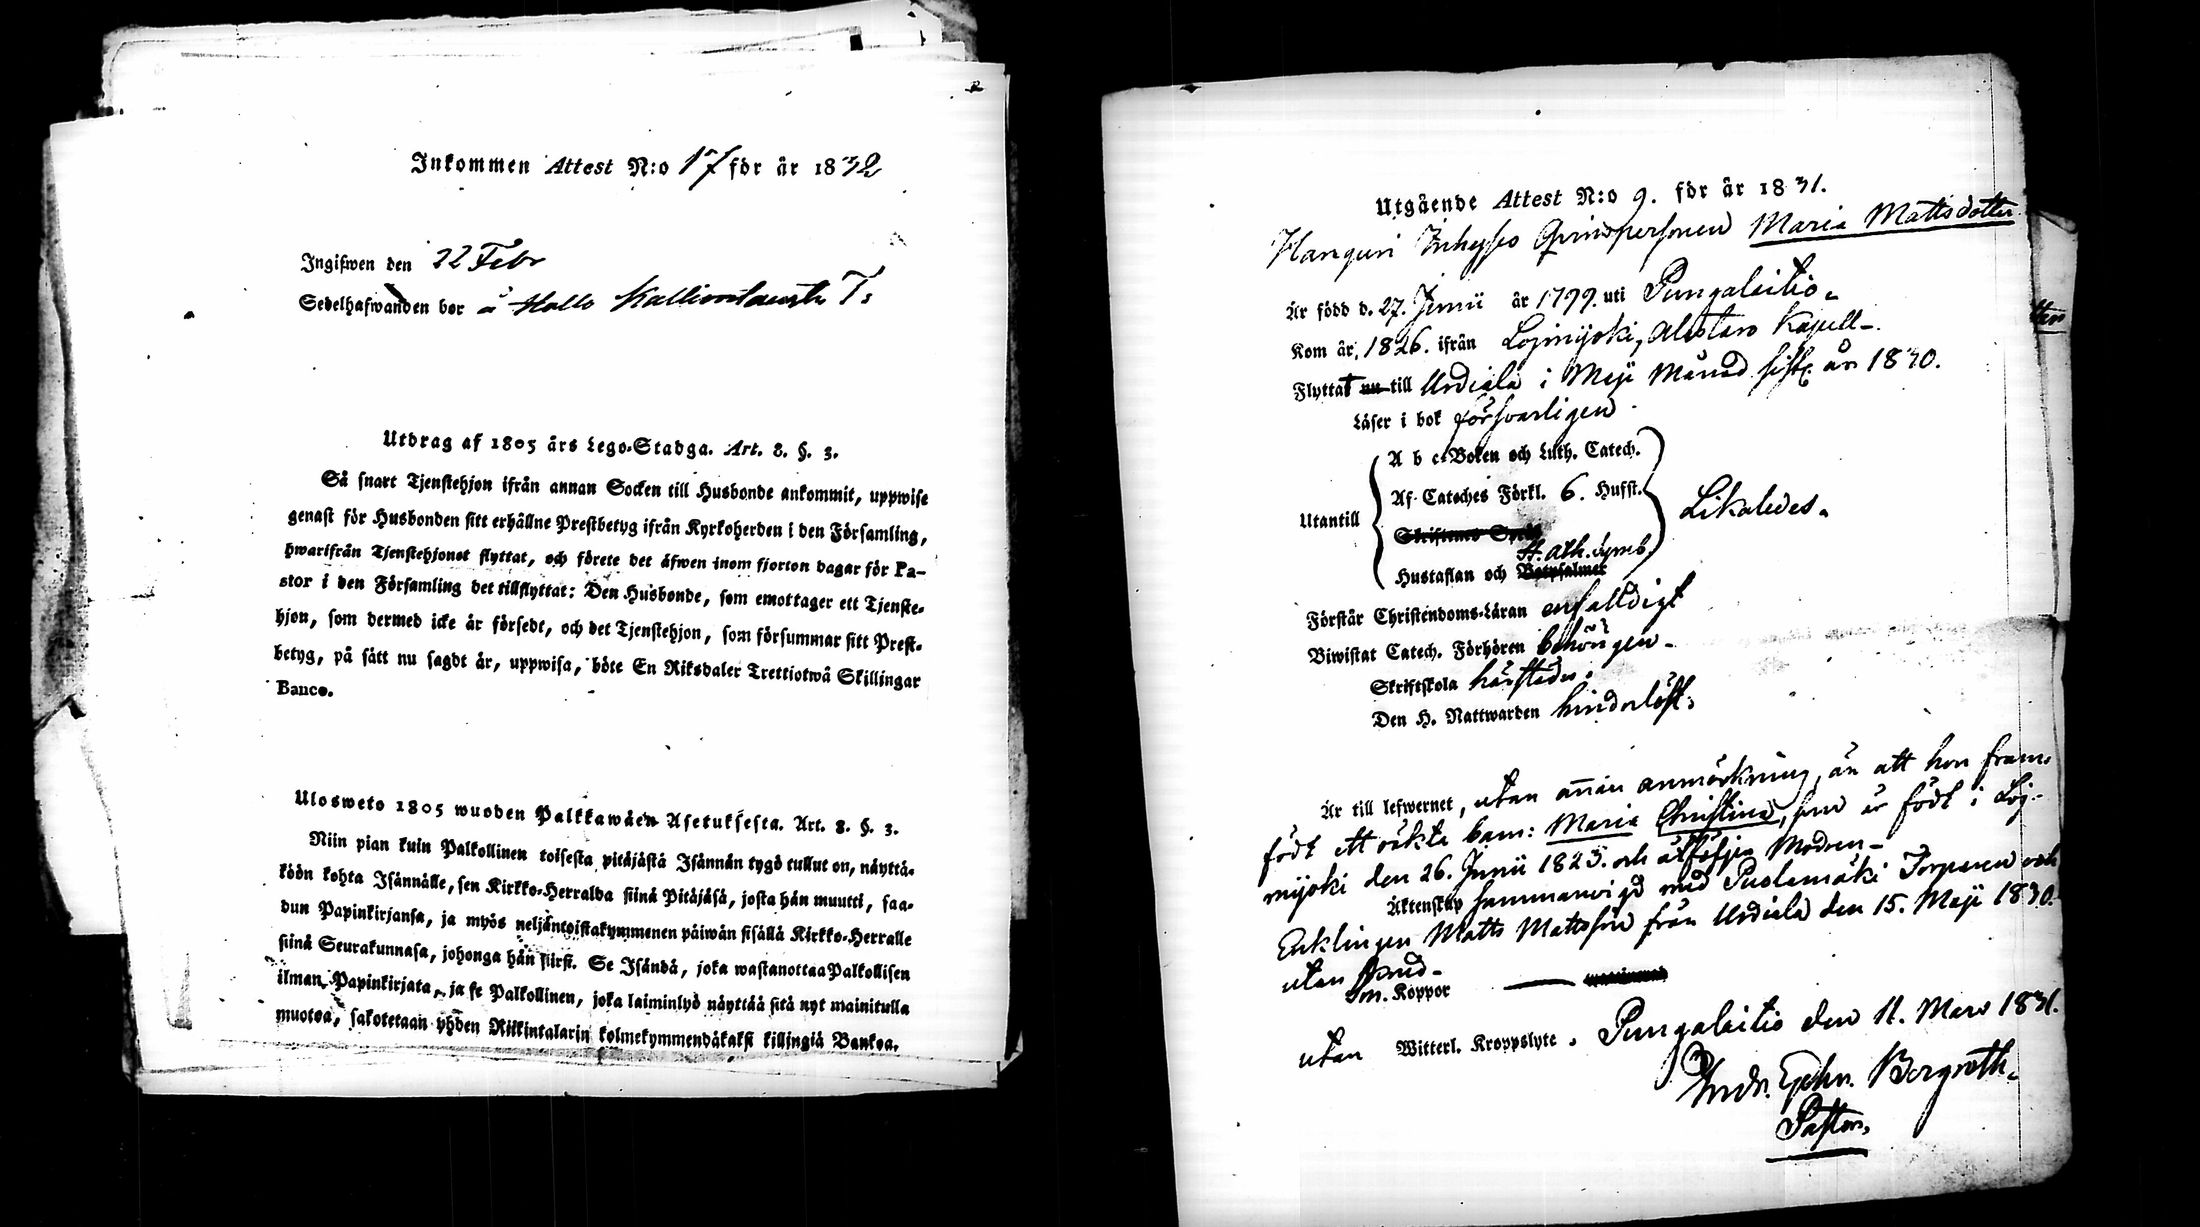 Inkommen Attest N:o 17 för år 1832
Ingifwen den 22 Febr
Sedelhafwanden bor å Hallo T:
Utdrag af 1805 års Lego-Stadga. Art. 8. §. 3.
Så snart Tjenstehjon ifrån annan Socken till Husbonde ankommit, uppwise
genast för Husbonden sitt erhållne Prestbetyg ifrån Kyrkoherden i den Församling,
hwarifrån Tjenstehjonet flyttat, och förete det äfwen inom fjorton dagar för Pa-
stor i den Församling det tillflyttat: Den Husbonde, som emottager ett Tjenste-
hjon, som dermed icke är försedt, och det Tjenstehjon, som försummar sitt Prest-
betyg, på sätt nu sagdt är, uppwisa, böte En Riksdaler Trettiotwå Skillingar
Banco.
Ulosweto 1805 wuoden Palkkawäen Asetuksesta. Art. 8. §. 3.
Niin pian kuin Palkollinen toisesta pitäjästä Isännän tygö tullut on, näyttä-
köön kohta Isännälle, sen Kirkko-Herralda siinä Pitäjäsä, josta hän muutti, saa-
dun Papinkirjansa, ja myös neljäntoistakymmenen päiwän sisällä Kirkko-Herralle
siinä Seurakunnasa, johonga hän siirsi. Se Isändä, joka wastanottaa Palkollisen
ilman Papinkirjata, ja se Palkollinen, joka laiminlyö näyttää sitä nyt mainitulla
muotoa, sakotetaan yhden Riikintalarin kolmekymmendäkaksi killingiä Bankoa.
Utgående Attest N:o 9. för år 1831.
Hanguri Inhyses Qvinspersonen Maria Mattsdotter
Är född d. 27. Junii år 1799. uti Pungalaitio.
Kom år, 1826. ifrån Lojmijoki, Alastaro Kapell-.
Flyttat nu till Urdiala i Maji Månad sistl. år 1830.
Läser i bok försvarligen.
A b c-Boken och Luth. Catech.
Af Cateches Förkl. 6. Hufst.
Utantill
Likaledes.
Skriftenes Språk
H. Ath. Symb.
Hustaflan och Botpsalmer
Förstår Christendoms-Läran enfalldigt
Biwistat Catech. Förhören behörigen-
Skriftskola härstädes.
Den H. Nattwarden hinderlöst.
Är till lefwernet, utan annan anmärkning, än att hon fram-
födt ett oäkta barn: Maria Christina, som är född i Loj-
mijoki den 26. Junii 1823. och åtföljer Modren-
Äktenskap sammanvigd med Puolamäki Torparen och
Enklingen Matts Mattsson från Urdiala den 15. Maji 1830.
utan
Sm. Koppor
utan Witterl. Kroppslyte. Pungalaitio den 11. Mars 1831.
Andr. Ephr. Bergroth.
Pastor.